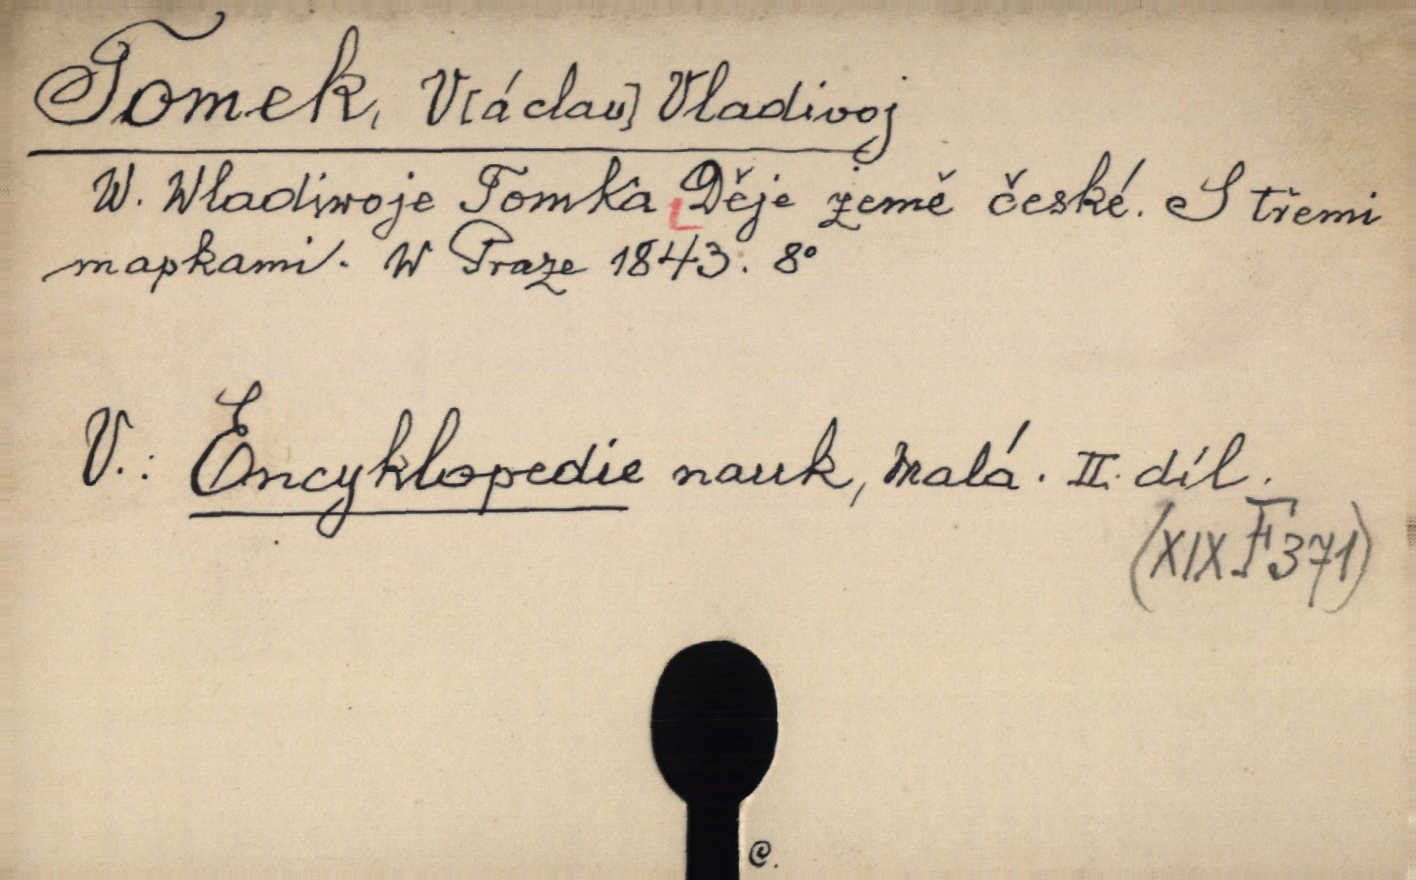 Tomek, V[áclav] Vladivoj
W. Wladiwoje Tomka Děje země české. S třemi
mapkami. W Praze 1843. 8°
V.: Encyklopedie nauk, malá. II. díl.
(XIX F 371)
C.